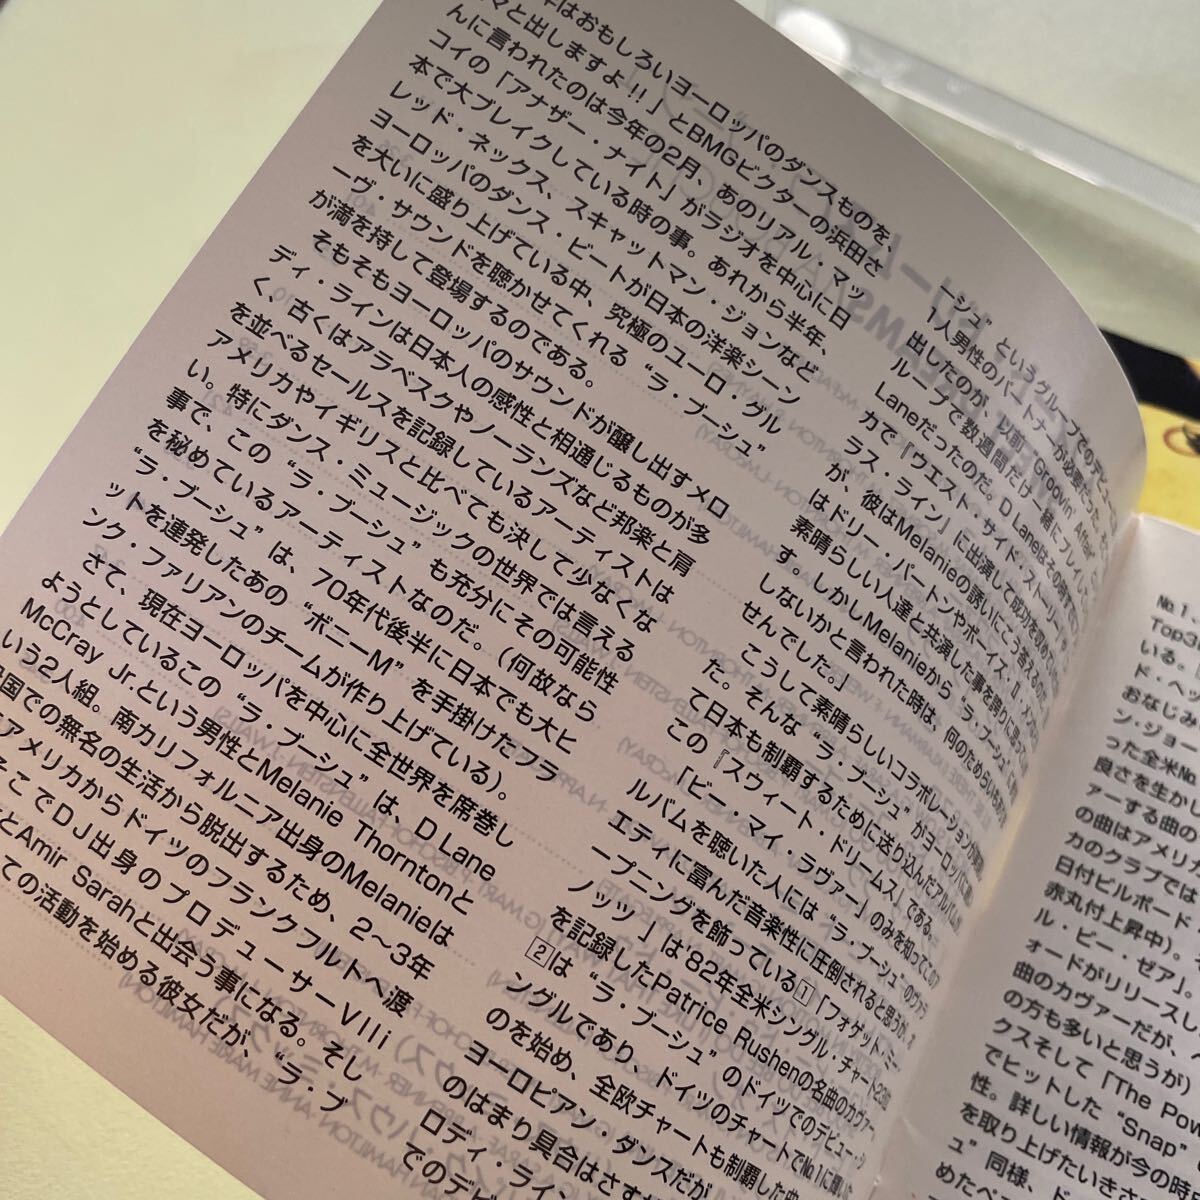 はおもしろいヨーロッパのダンスものを、
々と出しますよ!!」とBMGビクターの浜田さ
んに言われたのは今年の2月、あのリアル・マッ
コイの「アナザー・ナイト」がラジオを中心に日
本で大ブレイクしている時の事。あれから半年、
レッド・ネックス、スキャットマン・ジョンなど
ヨーロッパのダンス・ビートが日本の洋楽シーン
を大いに盛り上げている中、究極のユーロ・グル
ーヴ・サウンドを聴かせてくれる“ラ・ブーシュ”
が満を持して登場するのである。
そもそもヨーロッパのサウンドが醸し出すメロ
ディ・ラインは日本人の感性と相通じるものが多
く、古くはアラベスクやノーランズなど邦楽と肩
を並べるセールスを記録しているアーティストは
アメリカやイギリスと比べても決して少なくな
い。特にダンス・ミュージックの世界では言える
事で、この“ラ・ブーシュ”も充分にその可能性
を秘めているアーティストなのだ。(何故なら
“ラ・ブーシュ”は、70年代後半に日本でも大ヒ
ットを連発したあの“ボニーM”を手掛けたフラ
ンク・ファリアンのチームが作り上げている)。
さて、現在ヨーロッパを中心に全世界を席巻し
ようとしているこの“ラ・ブーシュ”は、D Lane
McCray Jr.という男性とMelanie Thorntonと
いう2人組。南カリフォルニア出身のMelanieは
国での無名の生活から脱出するため、2〜3年
アメリカからドイツのフランクフルトへ渡
そこでDJ出身のプロデューサーVlli
とAmir Sarahと出会う事になる。そし
ての活動を始める彼女だが、“ラ・ブ
ーシュ”というグループでのデビュー
1人男性のパートナーが必要だった。
出したのが、以前“Groovin' Affair”
ループで数週間だけ一緒にプレイし
Laneだったのだ。D Laneはその
カで『ウエスト・サイド・ストーリー』
ラス・ライン』に出演して成功を収めて
が、彼はMelanieの誘いにこう答えるの
はドリー・パートンやボーイズ・Ⅱ・メン
素晴らしい人達と共演した事を誇りに思って
す。しかしMelanieから“ラ・ブーシュ”に
しないかと言われた時は、何のためらいもありま
せんでした。」
こうして素晴らしいコラボレーションが
た。そんな“ラ・ブーシュ”がヨーロッパに
て日本も制覇するために送り込んだアルバムが
この『スウィート・ドリームス』である。
「ビー・マイ・ラヴァー」のみを知ってこのア
ルバムを聴いた人には“ラ・ブーシュ”のヴァラ
エティに富んだ音楽性に圧倒されると思うが、オ
ープニングを飾っている①「フォゲット・ミー・
ノッツ」は'82年全米シングル・チャート23位
を記録したPatrice Rushenの名曲のカヴァー、
②は“ラ・ブーシュ”のドイツでのデビュー・シ
ングルであり、ドイツのチャートでNo.1に輝いた
のを始め、全欧チャートも制覇した曲
ヨーロピアン・ダンスだが
のはまり具合はさす
ロディ・ライン
でのデビ
No.1
Top3
いる。
ド・ヘッ
おなじみ
ン・ジョー
った全米No.
良さを生かし
ァーする曲の
の曲はアメリ
カのクラブでは
日付ビルボード
赤丸付上昇中)。
ル・ビー・ゼア」。
ォードがリリースし
曲のカヴァーだが、
の方も多いと思うが)
クスそして「The Pow
でヒットした“Snap”
性。詳しい情報が今の時
を取り上げたいきさ
ュ”同様、ド
めたべ